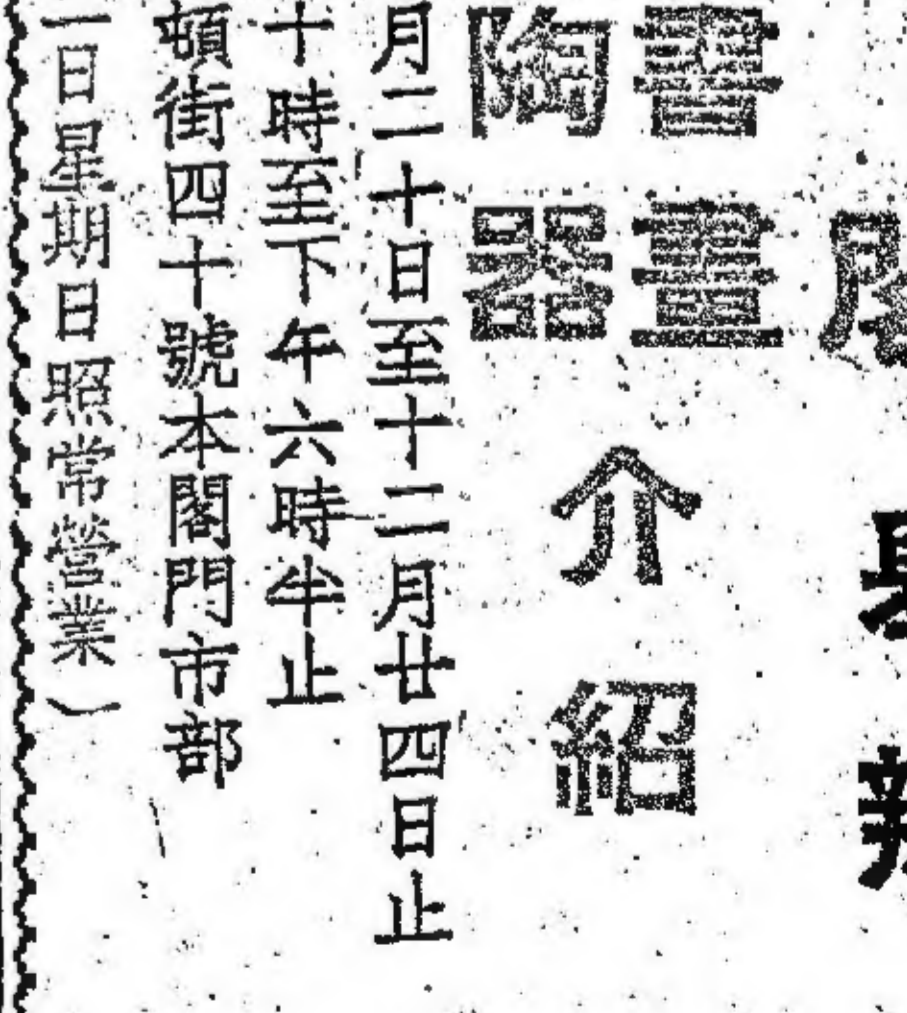 書畫
陶器
介紹
月二十日至十二月廿四日止
十時至下午六時半止
頓街四十號本閣門市部
日星期日照常營業）